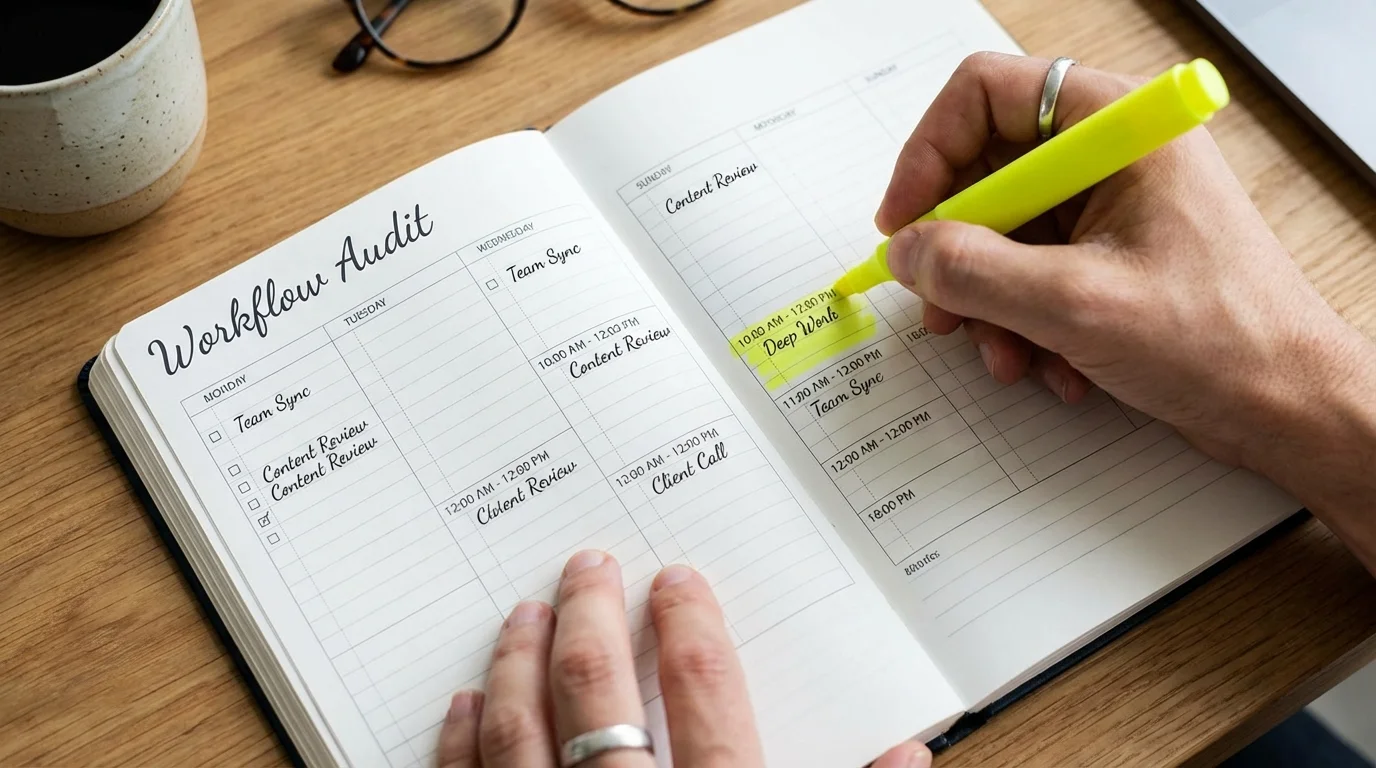 Workflow Audit
MONDAY
Team Sync
Content Review
Content Review
TUESDAY
12:00 AM - 12:00 PM
Review
WEDNESDAY
Team Sync
10:00 AM - 12:00
Content Review
12:00 AM - 12:00 PM
Client Call
SUNDAY
Content Review
10:00 AM - 12:00 PM
Deep Work
11:00 AM - 12:00 PM
Team Sync
12:00 AM - 12:00 PM
PM
SUNDAY